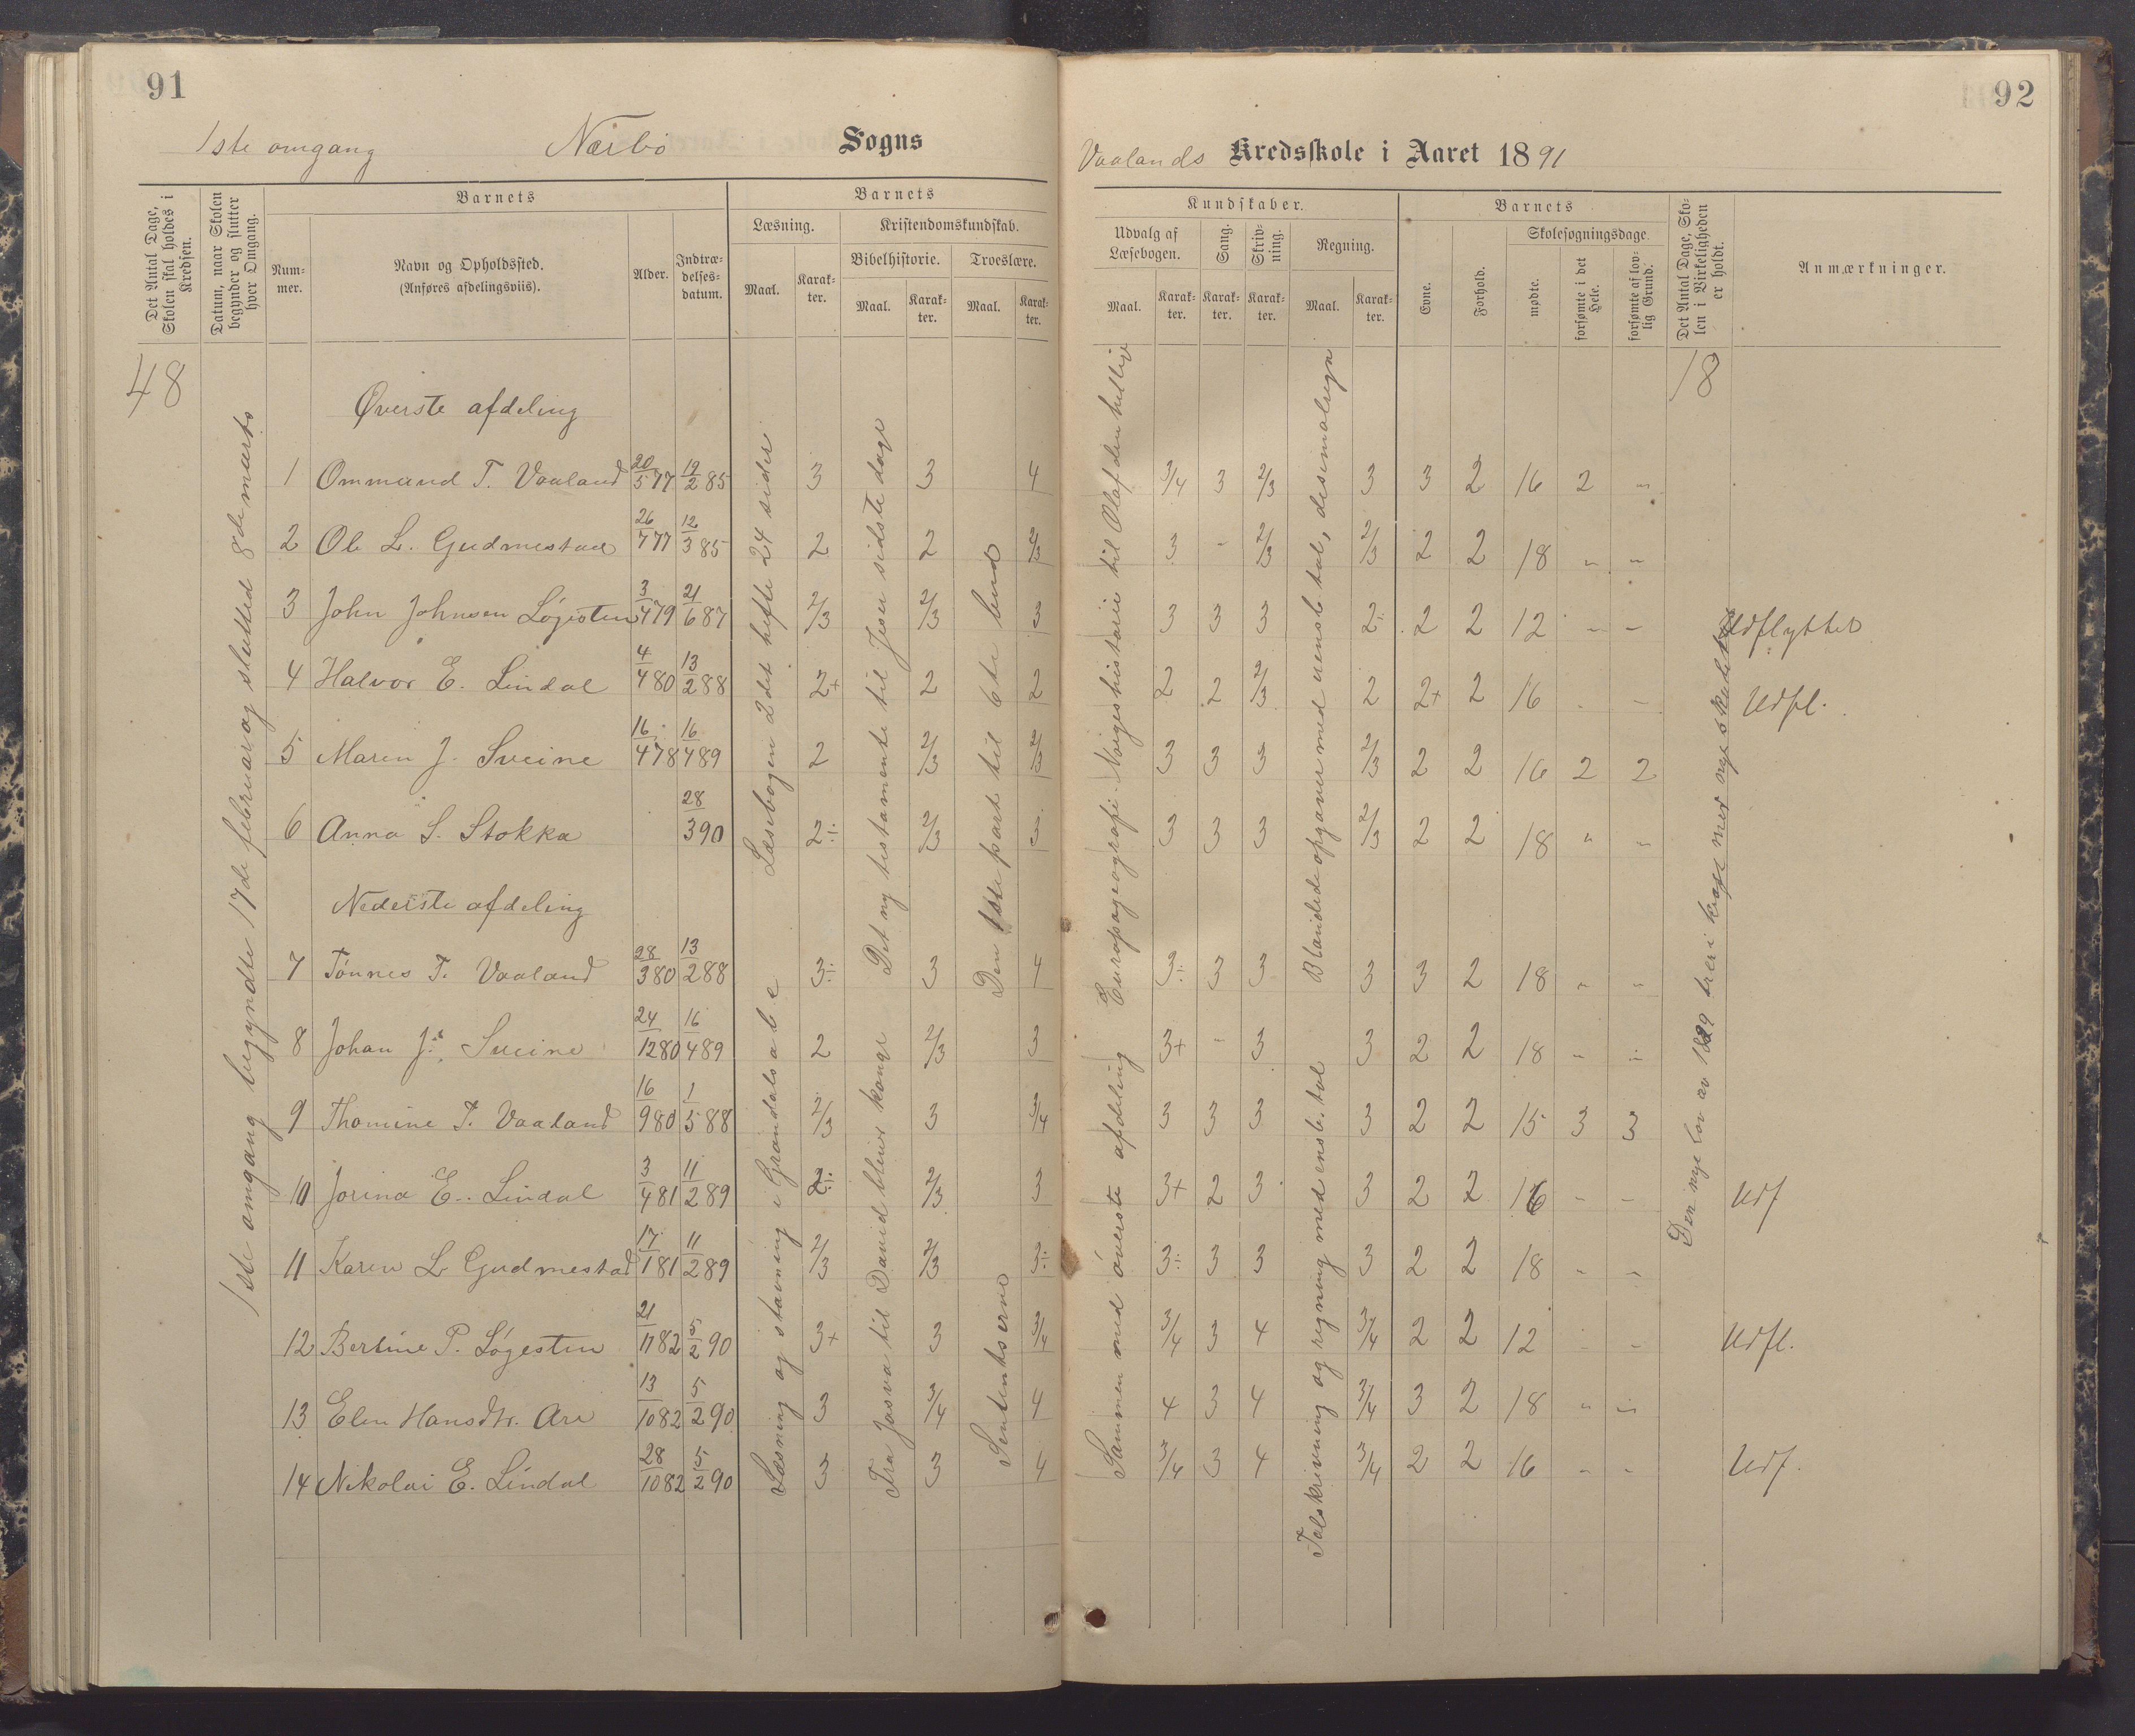 91
1ste omgang Nærbø Sogns
Det Antal Dage, Skolen skal holdes i Kredsen.
Datum, naar Skolen begynder og slutter hver Omgang.
Barnets
Num-
mer.
Navn og Opholdssted.
(Anføres afdelingsviis).
Alder.
Indtræ-
delses-
datum.
Barnets
Læsning.
Kristendomskundskab.
Bibelhistorie.
Troeslære.
Maal.
Karak-
ter.
Maal.
Karak-
ter.
Maal.
Karak-
ter.
48
1ste omgang begyndte 17de februar og slutted 8de marts
Øverste afdeling
1 Ommund T. Vaaland 20/5 77 12/2 85 3 3 4
2 Ole L. Gudmestad 26/7 77 12/3 85 2 2 2/3
3 John Johnsen Løgesten 3/4 79 21/6 87 2/3 2/3 3
4 Halvor E. Lindal 4/4 80 13/2 88 2+ 2 2
5 Maren J. Sveine 16/4 78 16/4 89 2 2/3 2/3
6 Anna S. Stokka 28/3 90 2÷ 2/3 3
Læsebogen 2det hefte 24 sider
Det ny testamente til Jesu sidste dage
Den 1ste part til 6te bud
Nederste afdeling
7 Tønnes T. Vaaland 28/3 80 13/2 88 3÷ 3 4
8 Johan J. Sveine 24/12 80 16/4 89 2 2/3 3
9 Thomine T. Vaaland 16/9 80 1/5 88 2/3 3 3/4
10 Jorina E. Lindal 3/4 81 11/2 89 2÷ 2/3 3
11 Karen L Gudmestad 17/1 81 11/2 89 2/3 2/3 3÷
12 Bertine P. Løgesten 21/11 82 5/2 90 3+ 3 3/4
13 Elen Hansdtr. Are 13/10 82 5/2 90 3 3/4 4
14 Nikolai E. Lindal 28/10 82 5/2 90 3 3 4
Læsning og stavning i Grøndals abc
Fra Josva til David bliver konge
92
Vaalands Kredsskole i Aaret 1891
Kundskaber.
Udvalg af
Læsebogen.
Sang.
Skriv-
ning.
Regning.
Maal.
Karak-
ter.
Karak-
ter.
Karak-
ter.
Maal.
Karak-
ter.
Barnets
Evne.
Forhold.
Skolesøgningsdage.
mødte.
forsømte i det
Hele.
forsømte af lov-
lig Grund.
Det Antal Dage, Sko-
len i Virkeligheden
er holdt.
Anmærkninger.
18
3/4 3 2/3 3 3 2 16 2 "
3 - 2/3 2/3 2 2 18 " "
3 3 3 2÷ 2 2 12 - - Udflyttet
2 2 2/3 2 2+ 2 16 - - Udfl.
3 3 3 2/3 2 2 16 2 2
3 3 3 2/3 2 2 18 " "
Europageografi. Norges historie til Olaf den hellige
Blandede opgaver med uensb. tal, desimalregn
3÷ 3 3 3 3 2 18 " "
3+ - 3 3 2 2 18 " "
3 3 3 3 2 2 15 3 3
3+ 2 3 3 2 2 16 - - Udf
3÷ 3 3 3 2 2 18 " "
3/4 3 4 3/4 2 2 12 - - Udfl.
4 3 4 3/4 3 2 18 " "
3/4 3 4 3/4 2 2 16 - - Udf.
Sammen med øverste afdeling
Talskrivning og regning med ensb. tal
Den nye lov av 1889 træ i kraft med nye